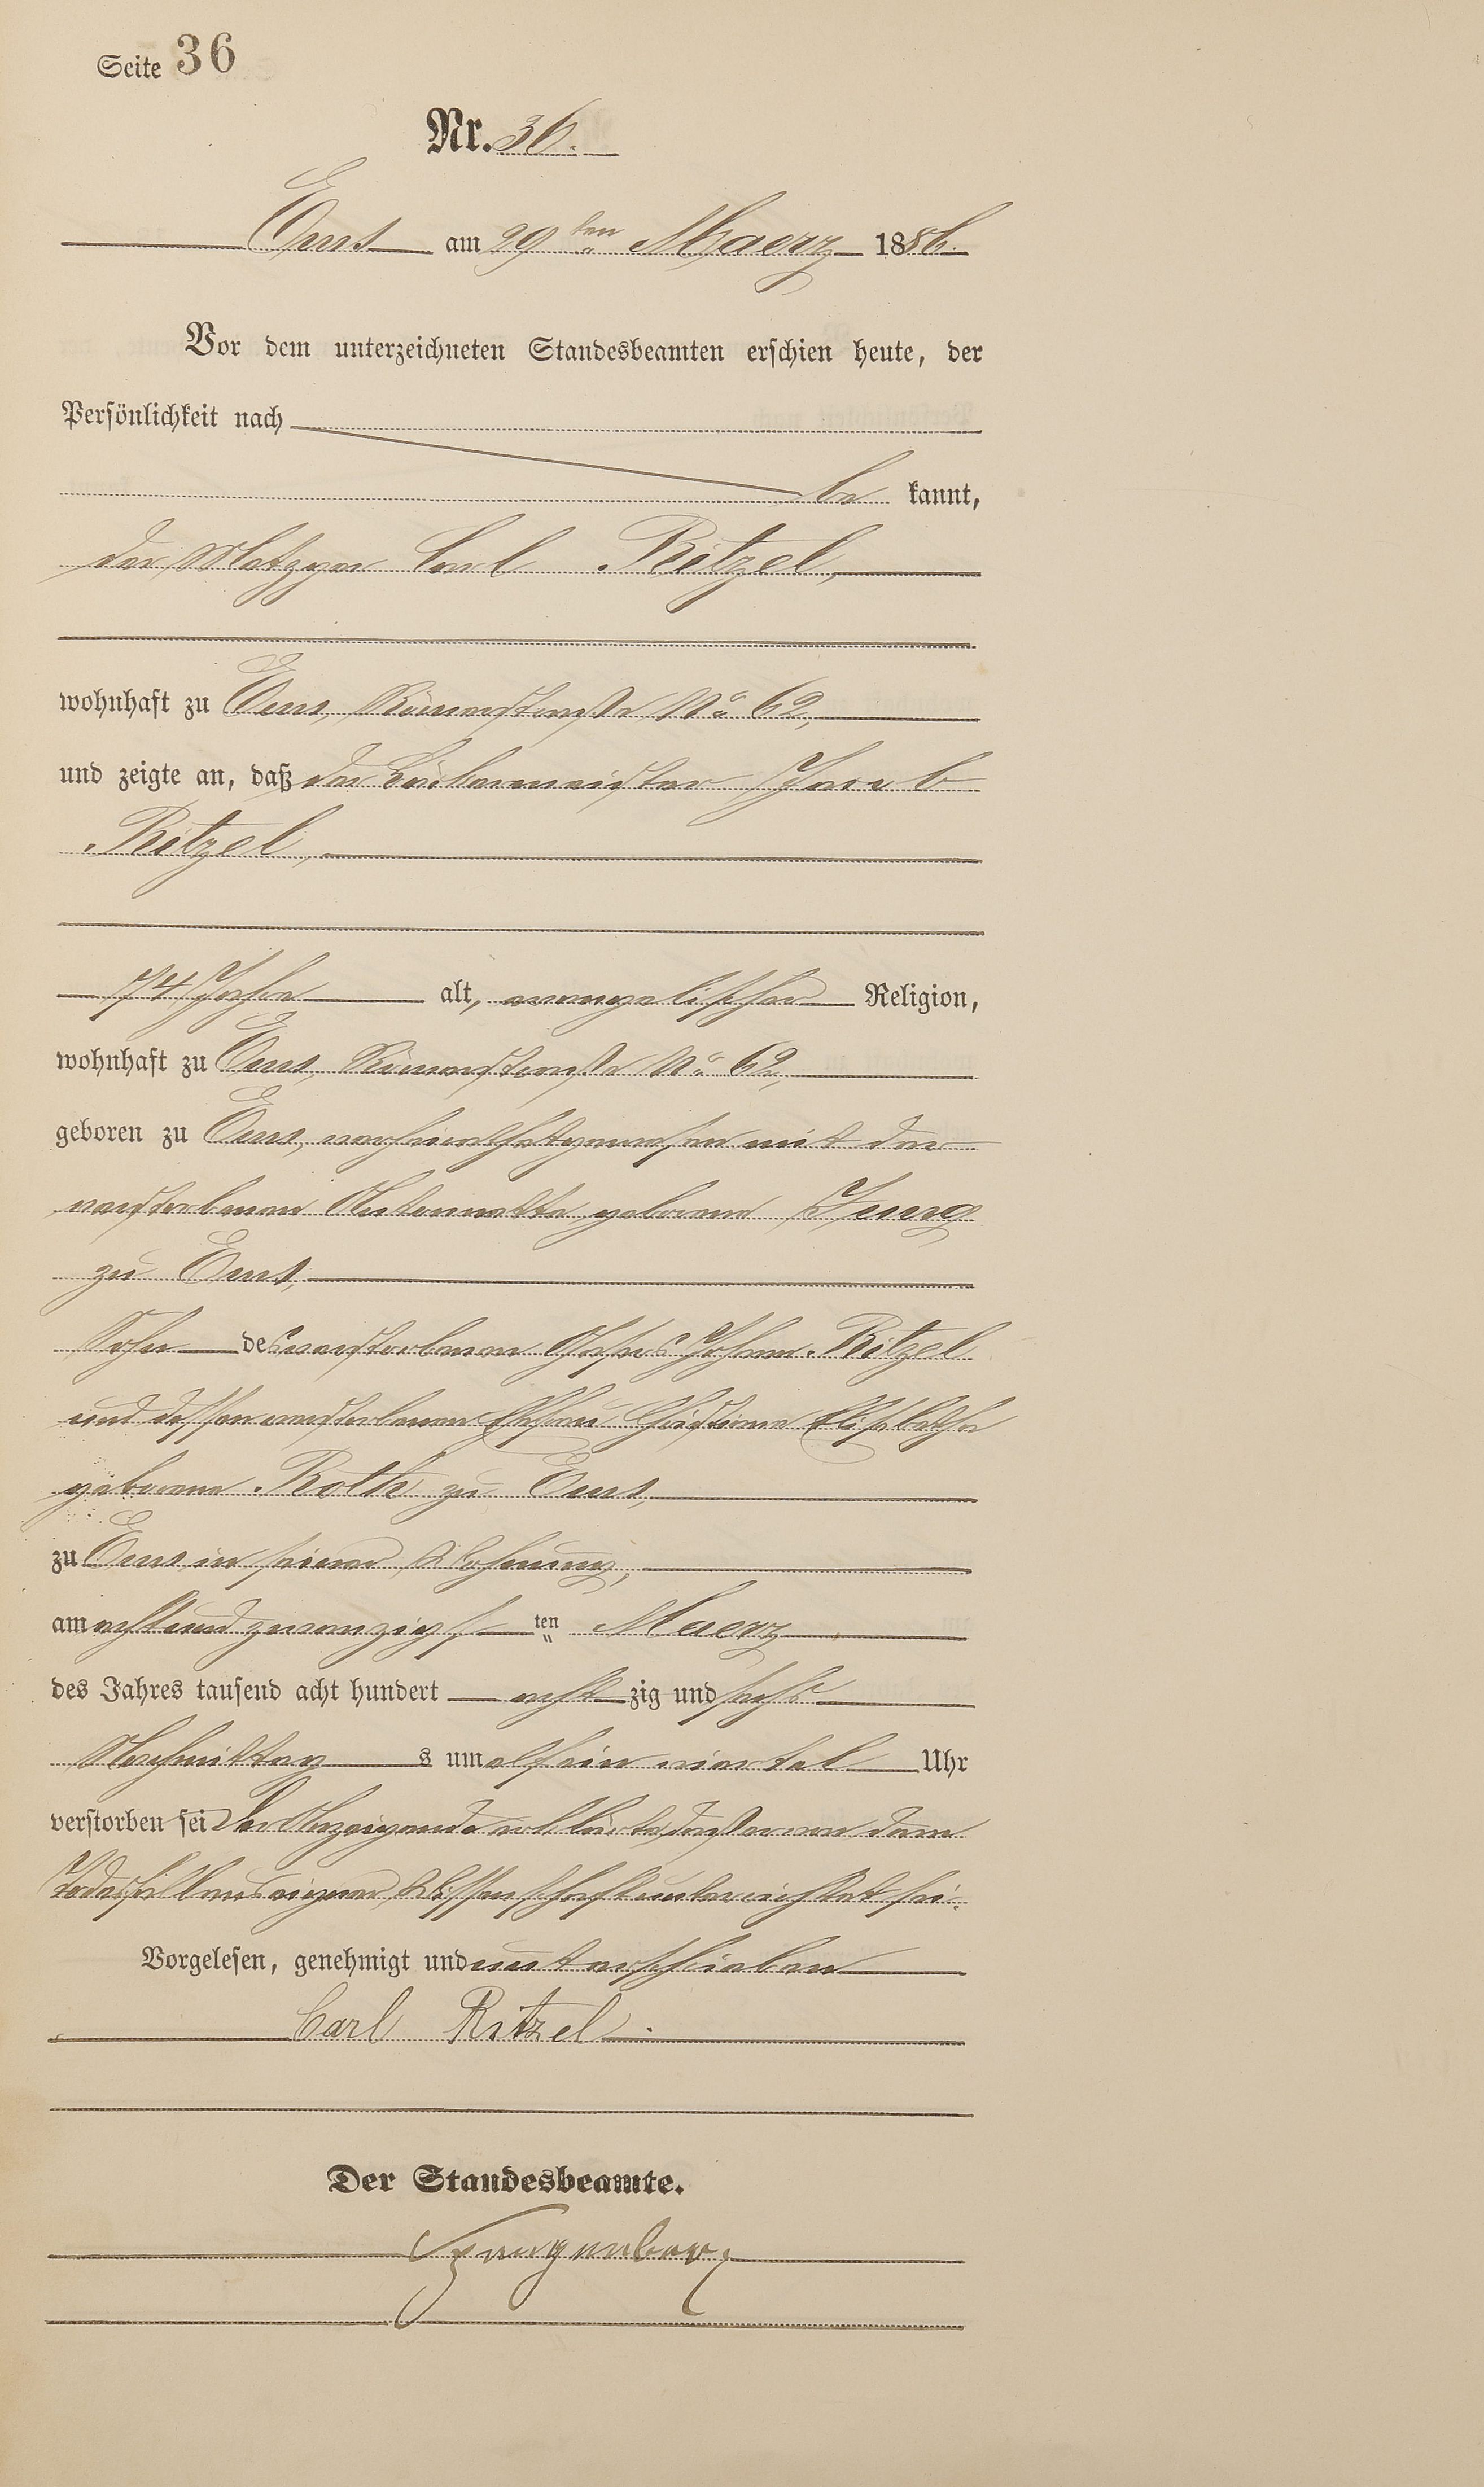 Seite 36
Nr. 36.
Ems am 29ten Maerz 1886.
Vor dem unterzeichneten Standesbeamten erschien heute, der
Persönlichkeit nach
be kannt,
der Metzger Carl Ritzel,
wohnhaft zu Ems, Römerstraße No 62,
und zeigte an, daß der Bäckermeister Jacob
Ritzel,
74 Jahre alt, evangelischer Religion,
wohnhaft zu Ems, Römerstraße No 62,
geboren zu Ems, verheirathet gewesen mit der
verstorbenen geborene Jung
zu Ems,
Sohn des verstorbenen Johann Ritzel
und dessen verstorbenen Ehefrau Christiane Elisabethe
geborene Roth zu Ems,
zu Ems in seiner Wohnung,
am achtundzwanzigsten Maerz
des Jahres tausend acht hundert acht zig und sechs
Nachmittags um elf ein viertel Uhr
verstorben sei Der Anzeigende erklärte, daß er von dem
Todesfall aus eigener Wissenschaft unterrichtet sei.
Vorgelesen, genehmigt und unterschrieben
Carl Ritzel.
Der Standesbeamte.
Spangenberg